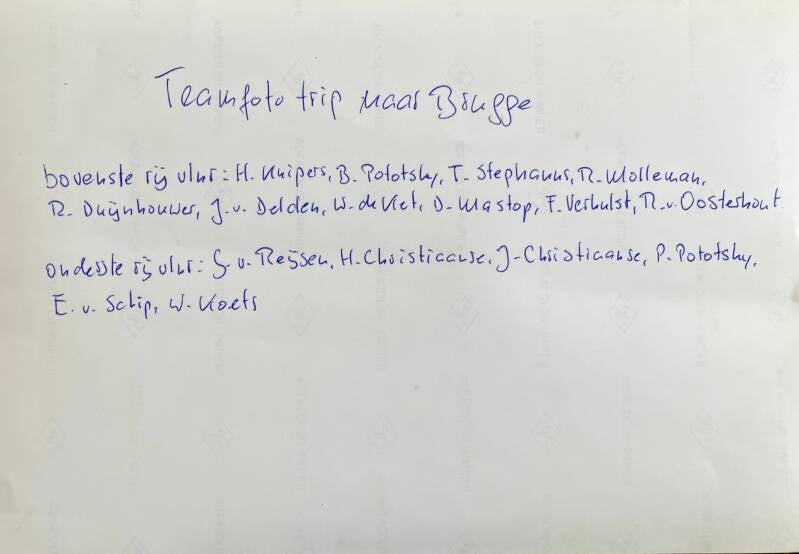 Teamfoto trip naar Brugge
bovenste rij vlnr: H. Kuipers, B. Pototsky, T. Stephanus, R. Molleman,
R. Duijnhouwer, J. v. Delden, W. de Vet, D. Mastop, F. Verhulst, R. v. Oosterhout
onderste rij vlnr: G. v. Reijsen, H. Christiaanse, J. Christiaanse, P. Pototsky,
E. v. Schip, W. Koets